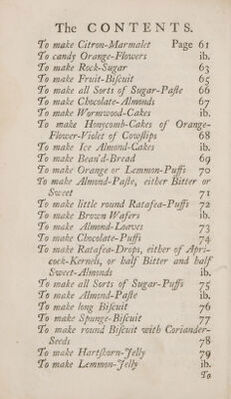 The CONTENTS.
To make Citron-Marmalet Page 61
To candy Orange-Flowers ib.
To make Rock-Sugar 63
To make Fruit-Biſcuit 65
To make all Sorts of Sugar-Paſte 66
To make Chocolate-Almonds 67
To make Wormwood-Cakes ib.
To make Honycomb-Cakes of Orange-
Flower-Violet of Cowſlips 68
To make Ice Almond-Cakes ib.
To make Bean'd-Bread 69
To make Orange or Lemmon-Puffs 70
To make Almond-Paſte, either Bitter or
Sweet 71
To make little round Ratafea-Puffs 72
To make Brown Wafers ib.
To make Almond-Loaves 73
To make Chocolate-Puffs 74
To make Ratafea-Drops, either of Apri-
cock-Kernels, or half Bitter and half
Sweet-Almonds ib.
To make all Sorts of Sugar-Puffs 75
To make Almond-Paſte ib.
To make long Biſcuit 76
To make Spunge-Biſcuit 77
To make round Biſcuit with Coriander-
Seeds 78
To make Hartſhorn-Jelly 79
To make Lemmon-Jelly ib.
To